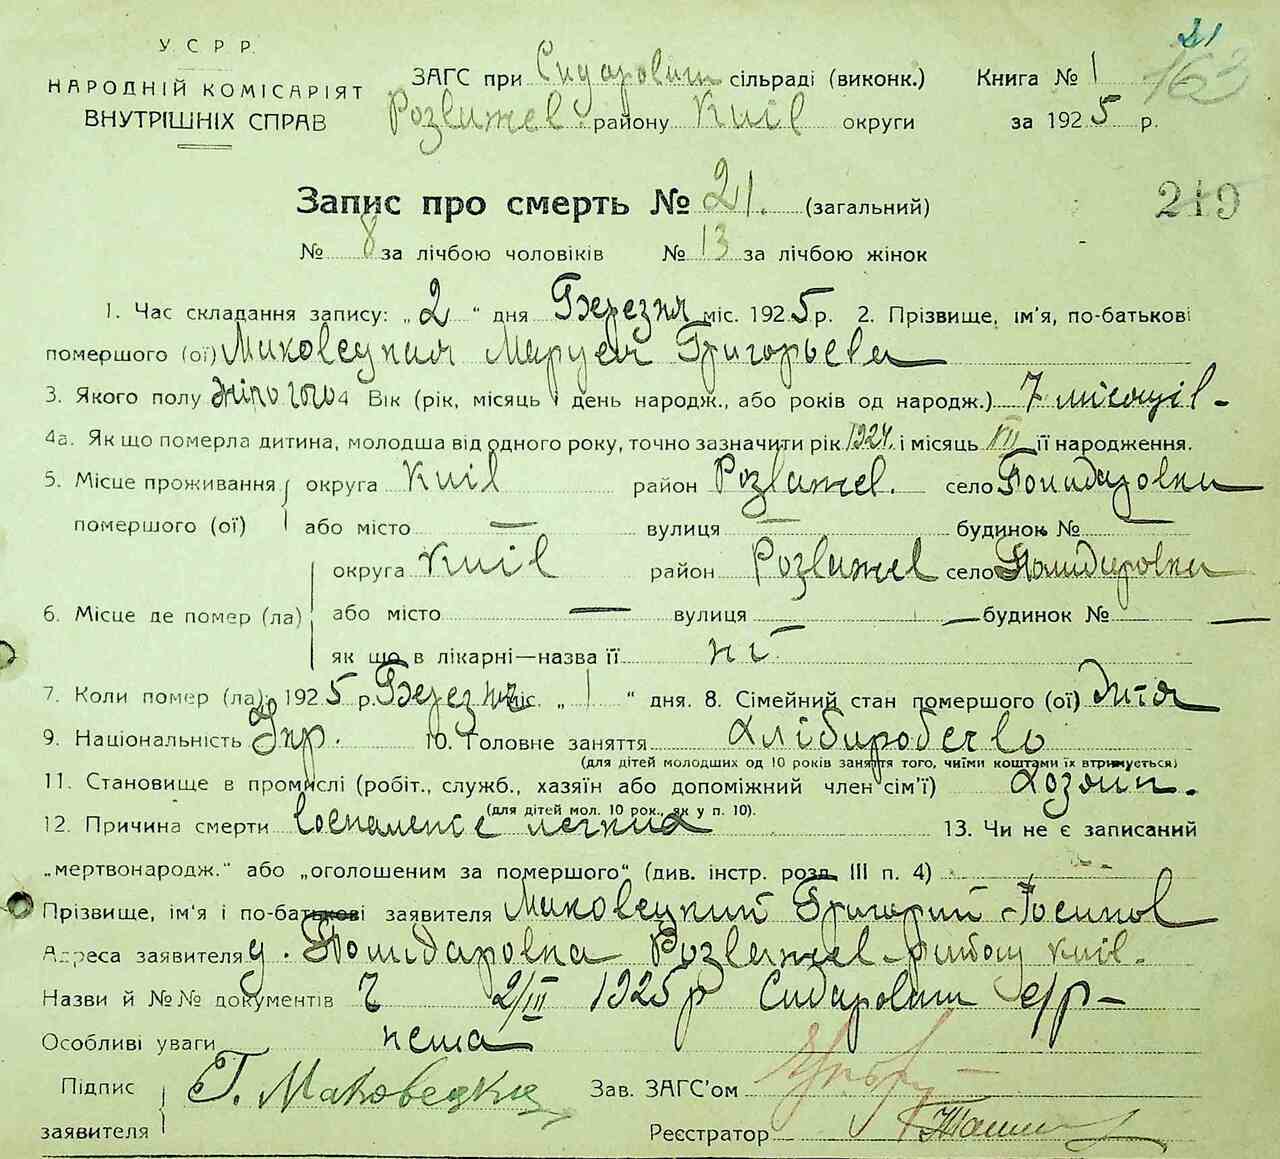 У.С.Р.Р.
НАРОДНІЙ КОМІСАРІЯТ
ВНУТРІШНІХ СПРАВ
ЗАГС при Сидаровит сільраді (виконк.)
Розважев. району Київ округи
Книга № 1
за 1925 р.
21
163
219
Запис про смерть № 21. (загальний)
№ 8 за лічбою чоловіків № 13 за лічбою жінок
1. Час складання запису: „2" дня Березня міс. 1925 р. 2. Прізвище, ім'я, по-батькові
помершого (ої) Маковецкая Маруся Григорьева
3. Якого полу жіночого 4 Вік (рік, місяць і день народж., або років од народж.) 7 місяців -
4а. Як що померла дитина, молодша від одного року, точно зазначити рік 1924. і місяць VII її народження.
5. Місце проживання округа Київ район Розважев. село
помершого (ої) або місто — вулиця — будинок № —
округа Київ район Розважев село
6. Місце де помер (ла) або місто — вулиця — будинок № —
як що в лікарні—назва її ні
7. Коли помер (ла): 1925 р. Березня міс. „1" дня. 8. Сімейний стан помершого (ої) Дитя
9. Національність Укр. 10. Головне заняття Хліборобство
(для дітей молодших од 10 років заняття того, чиїми коштами їх втримується)
11. Становище в промислі (робіт., служб., хазяїн або допоміжний член сім'ї) Хозяин.
(для дітей мол. 10 рок., як у п. 10).
12. Причина смерти воспаление легких 13. Чи не є записаний
„мертвонародж." або „оголошеним за помершого" (див. інстр. розд. III п. 4)
Прізвище, ім'я і по-батькові заявителя Маковецкий Григорий Иосипов
Адреса заявителя Розважев району Київ.
Назви й №№ документів 2/III 1925 р с/р -
Особливі уваги нема
Підпис
заявителя Г. Маковецки
Зав. ЗАГС'ом
Реєстратор